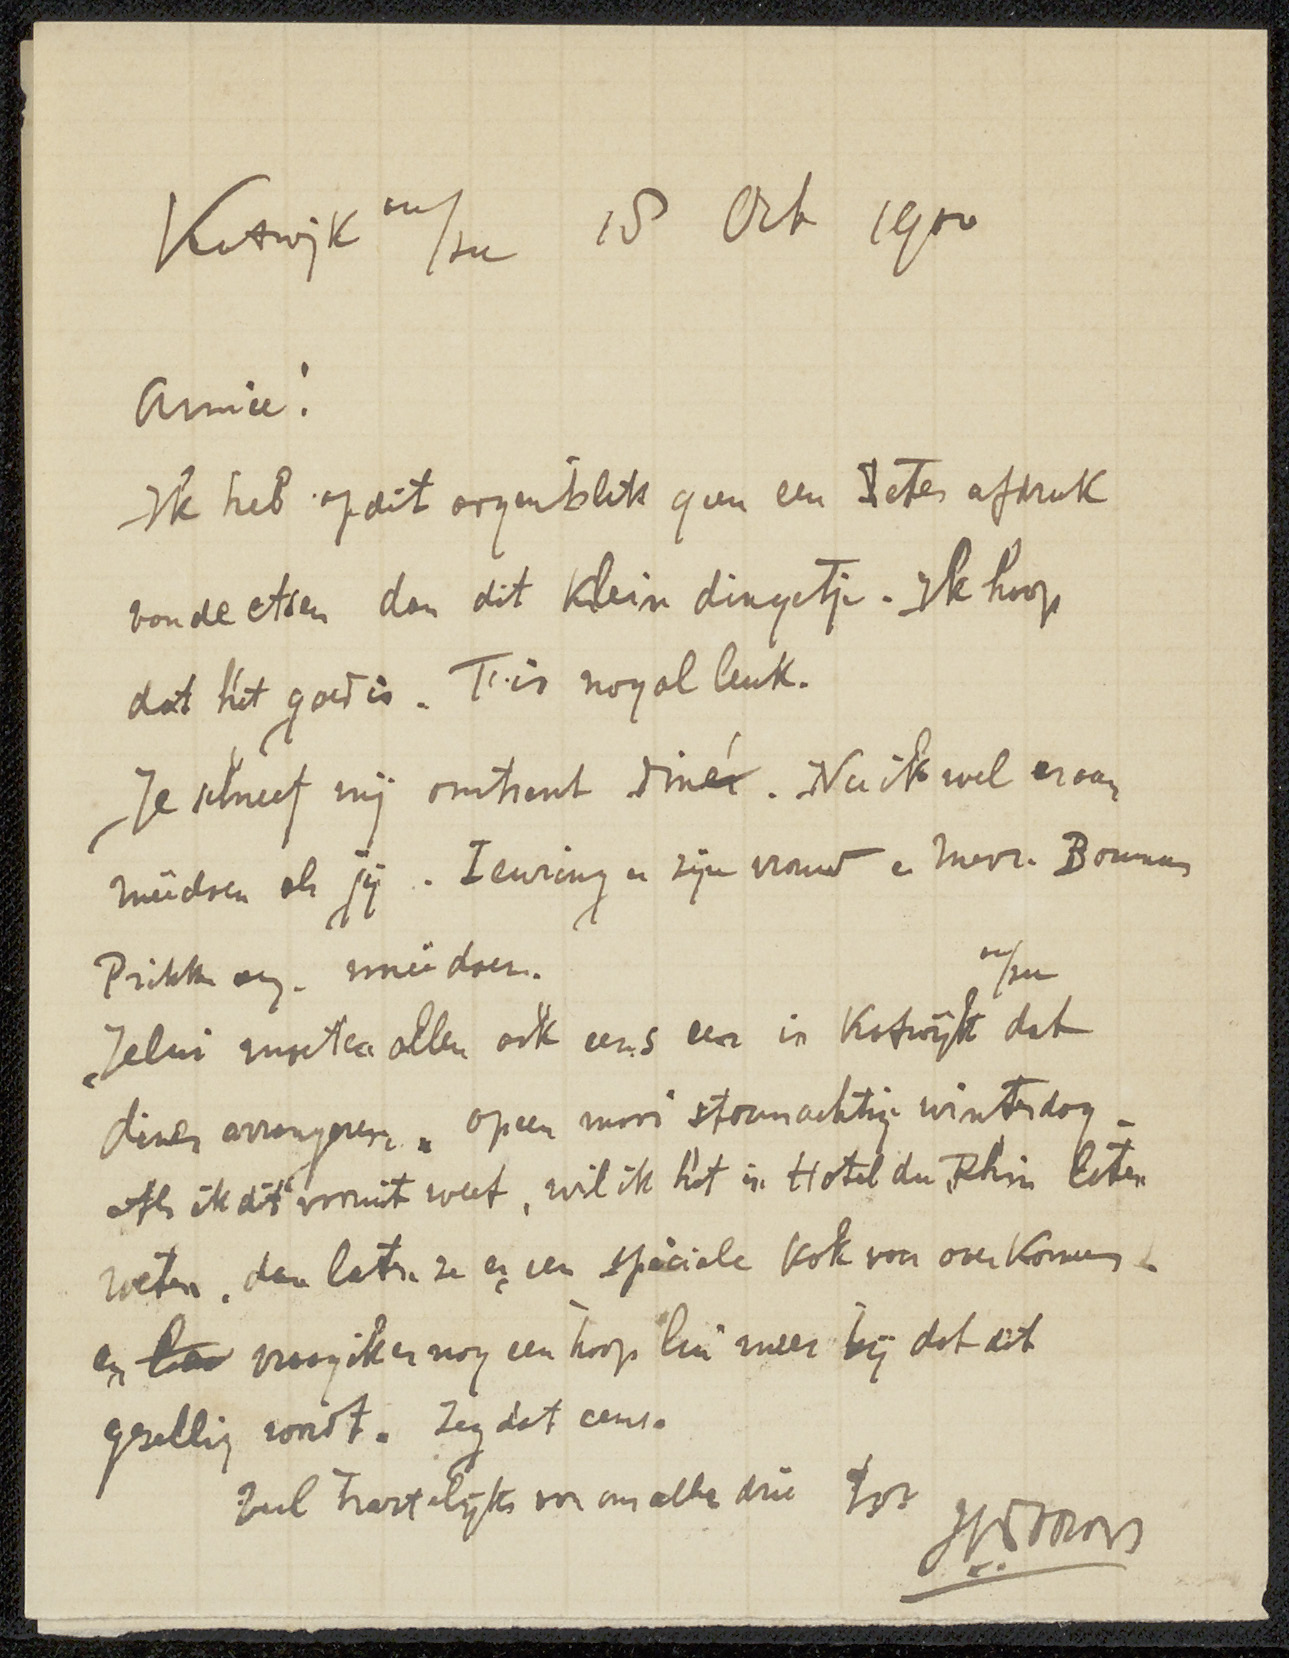 Katwijk a/zee 18 Oct 1900
Amice!
Ik heb op dit oogenblik geen een afdruk
van de etsen dan dit klein dingetje. Ik hoop
dat het goed is. T is nogal leuk.
Je schreef mij omtrent diner. Nu ik wel eraan
meedoen als jij. Isewring en zijn vrouw en Mevr. Bouman
Prikk meedoen.
Jelui moeten allen ook eens een in Katwijk a/zee dat
diner arrangeren. op een mooi stormachtig winterdag
Als ik dit vooruit weet, wil ik het in Hotel du Rhin laten
weten. dan laten ze er een speciale kok voor overkomen
en vraag ik er nog een hoop lui meer bij dat dit
gezellig wordt. Zeg dat eens.
Veel hartelijks van ons alle drie